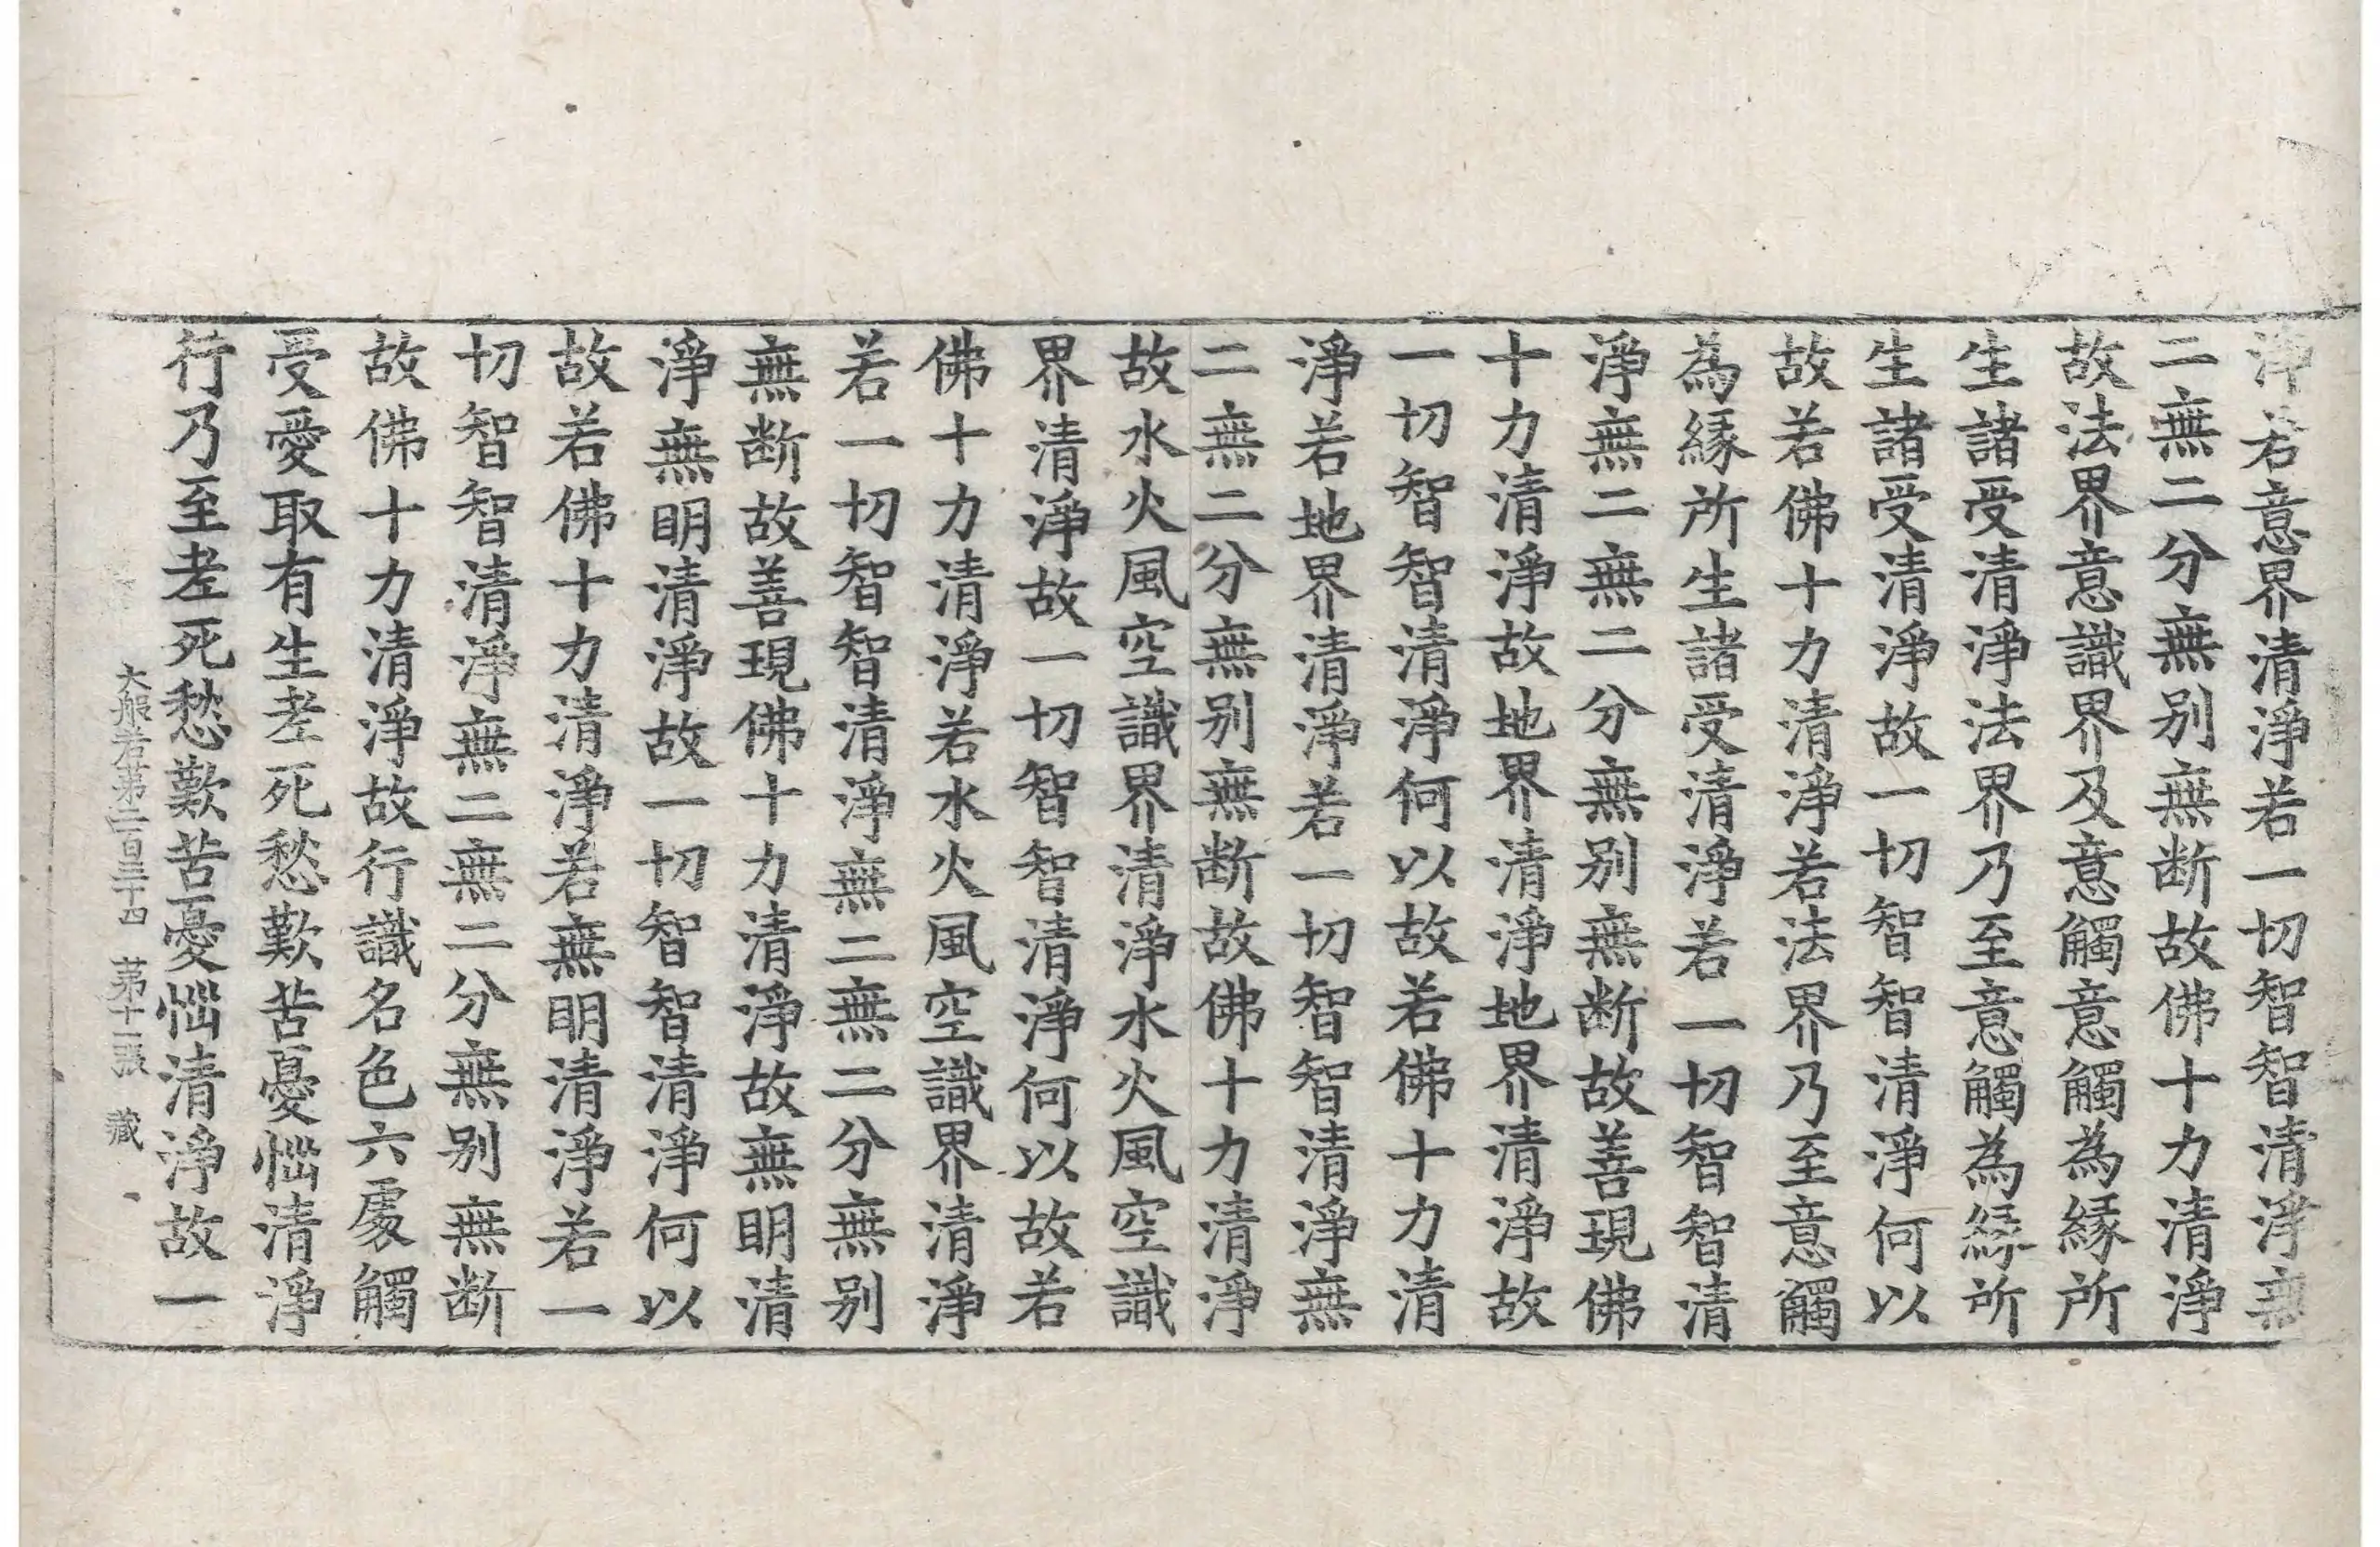 淨若意界清淨若一切智智清淨無
二無二分無別無断故佛十力清淨
故法界意識界及意觸意觸為縁所
生諸受清淨法界乃至意觸為縁所
生諸受清淨故一切智智清淨何以
故若佛十力清淨若法界乃至意觸
為縁所生諸受清淨若一切智智清
淨無二無二分無別無断故善現佛
十力清淨故地界清淨地界清淨故
一切智智清淨何以故若佛十力清
淨若地界清淨若一切智智清淨無
二無二分無別無断故佛十力清淨
故水火風空識界清淨水火風空識
界清淨故一切智智清淨何以故若
佛十力清淨若水火風空識界清淨
若一切智智清淨無二無二分無別
無断故善現佛十力清淨故無明清
淨無明清淨故一切智智清淨何以
故若佛十力清淨若無明清淨若一
切智智清淨無二無二分無別無断
故佛十力清淨故行識名色六處觸
受愛取有生老死愁歎苦憂惱清淨
行乃至老死愁歎苦憂惱清淨故一
大般若第二百三十四 苐十二張 藏